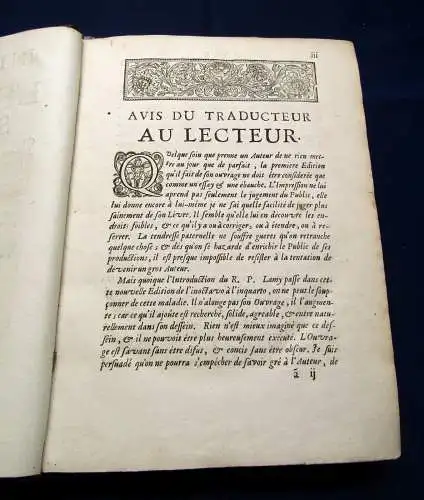 iij
AVIS DU TRADUCTEUR
AU LECTEUR.
QUelque soin que prenne un Auteur de ne rien met-
tre au jour que de parfait, la premiere Edition
qu'il fait de son ouvrage ne doit être considerée que
comme un essay & une ébauche. L'Impression ne lui
aprend pas seulement le jugement du Public, elle
lui donne encore à lui-même je ne sai quelle facilité de juger plus
sainement de son Livre. Il semble qu'elle lui en découvre les en-
droits foibles, & ce qu'il y a ou à corriger, ou à étendre, ou à re-
serrer. La tendresse paternelle ne souffre gueres qu'on retranche
quelque chose; & dès qu'on se hazarde d'enrichir le Public de ses
productions, il est presque impossible de resister à la tentation de
devenir un gros Auteur.
Mais quoique l'Introduction du R. P. Lamy passe dans cet-
te nouvelle Edition de l'inoctavo à l'inquarto, on ne peut le soup-
çonner de cette maladie. Il n'alonge pas son Ouvrage, il l'augmen-
te; car ce qu'il ajoûte est recherché, solide, agreable, & entre natu-
rellement dans son dessein. Rien n'est mieux imaginé que ce des-
sein, & il ne pouvoit être plus heureusement executé. L'Ouvra-
ge est savant sans être difus, & concis sans être obscur. Je suis
persuadé qu'on ne pourra s'empécher de savoir gré à l'Auteur, de
ã ij